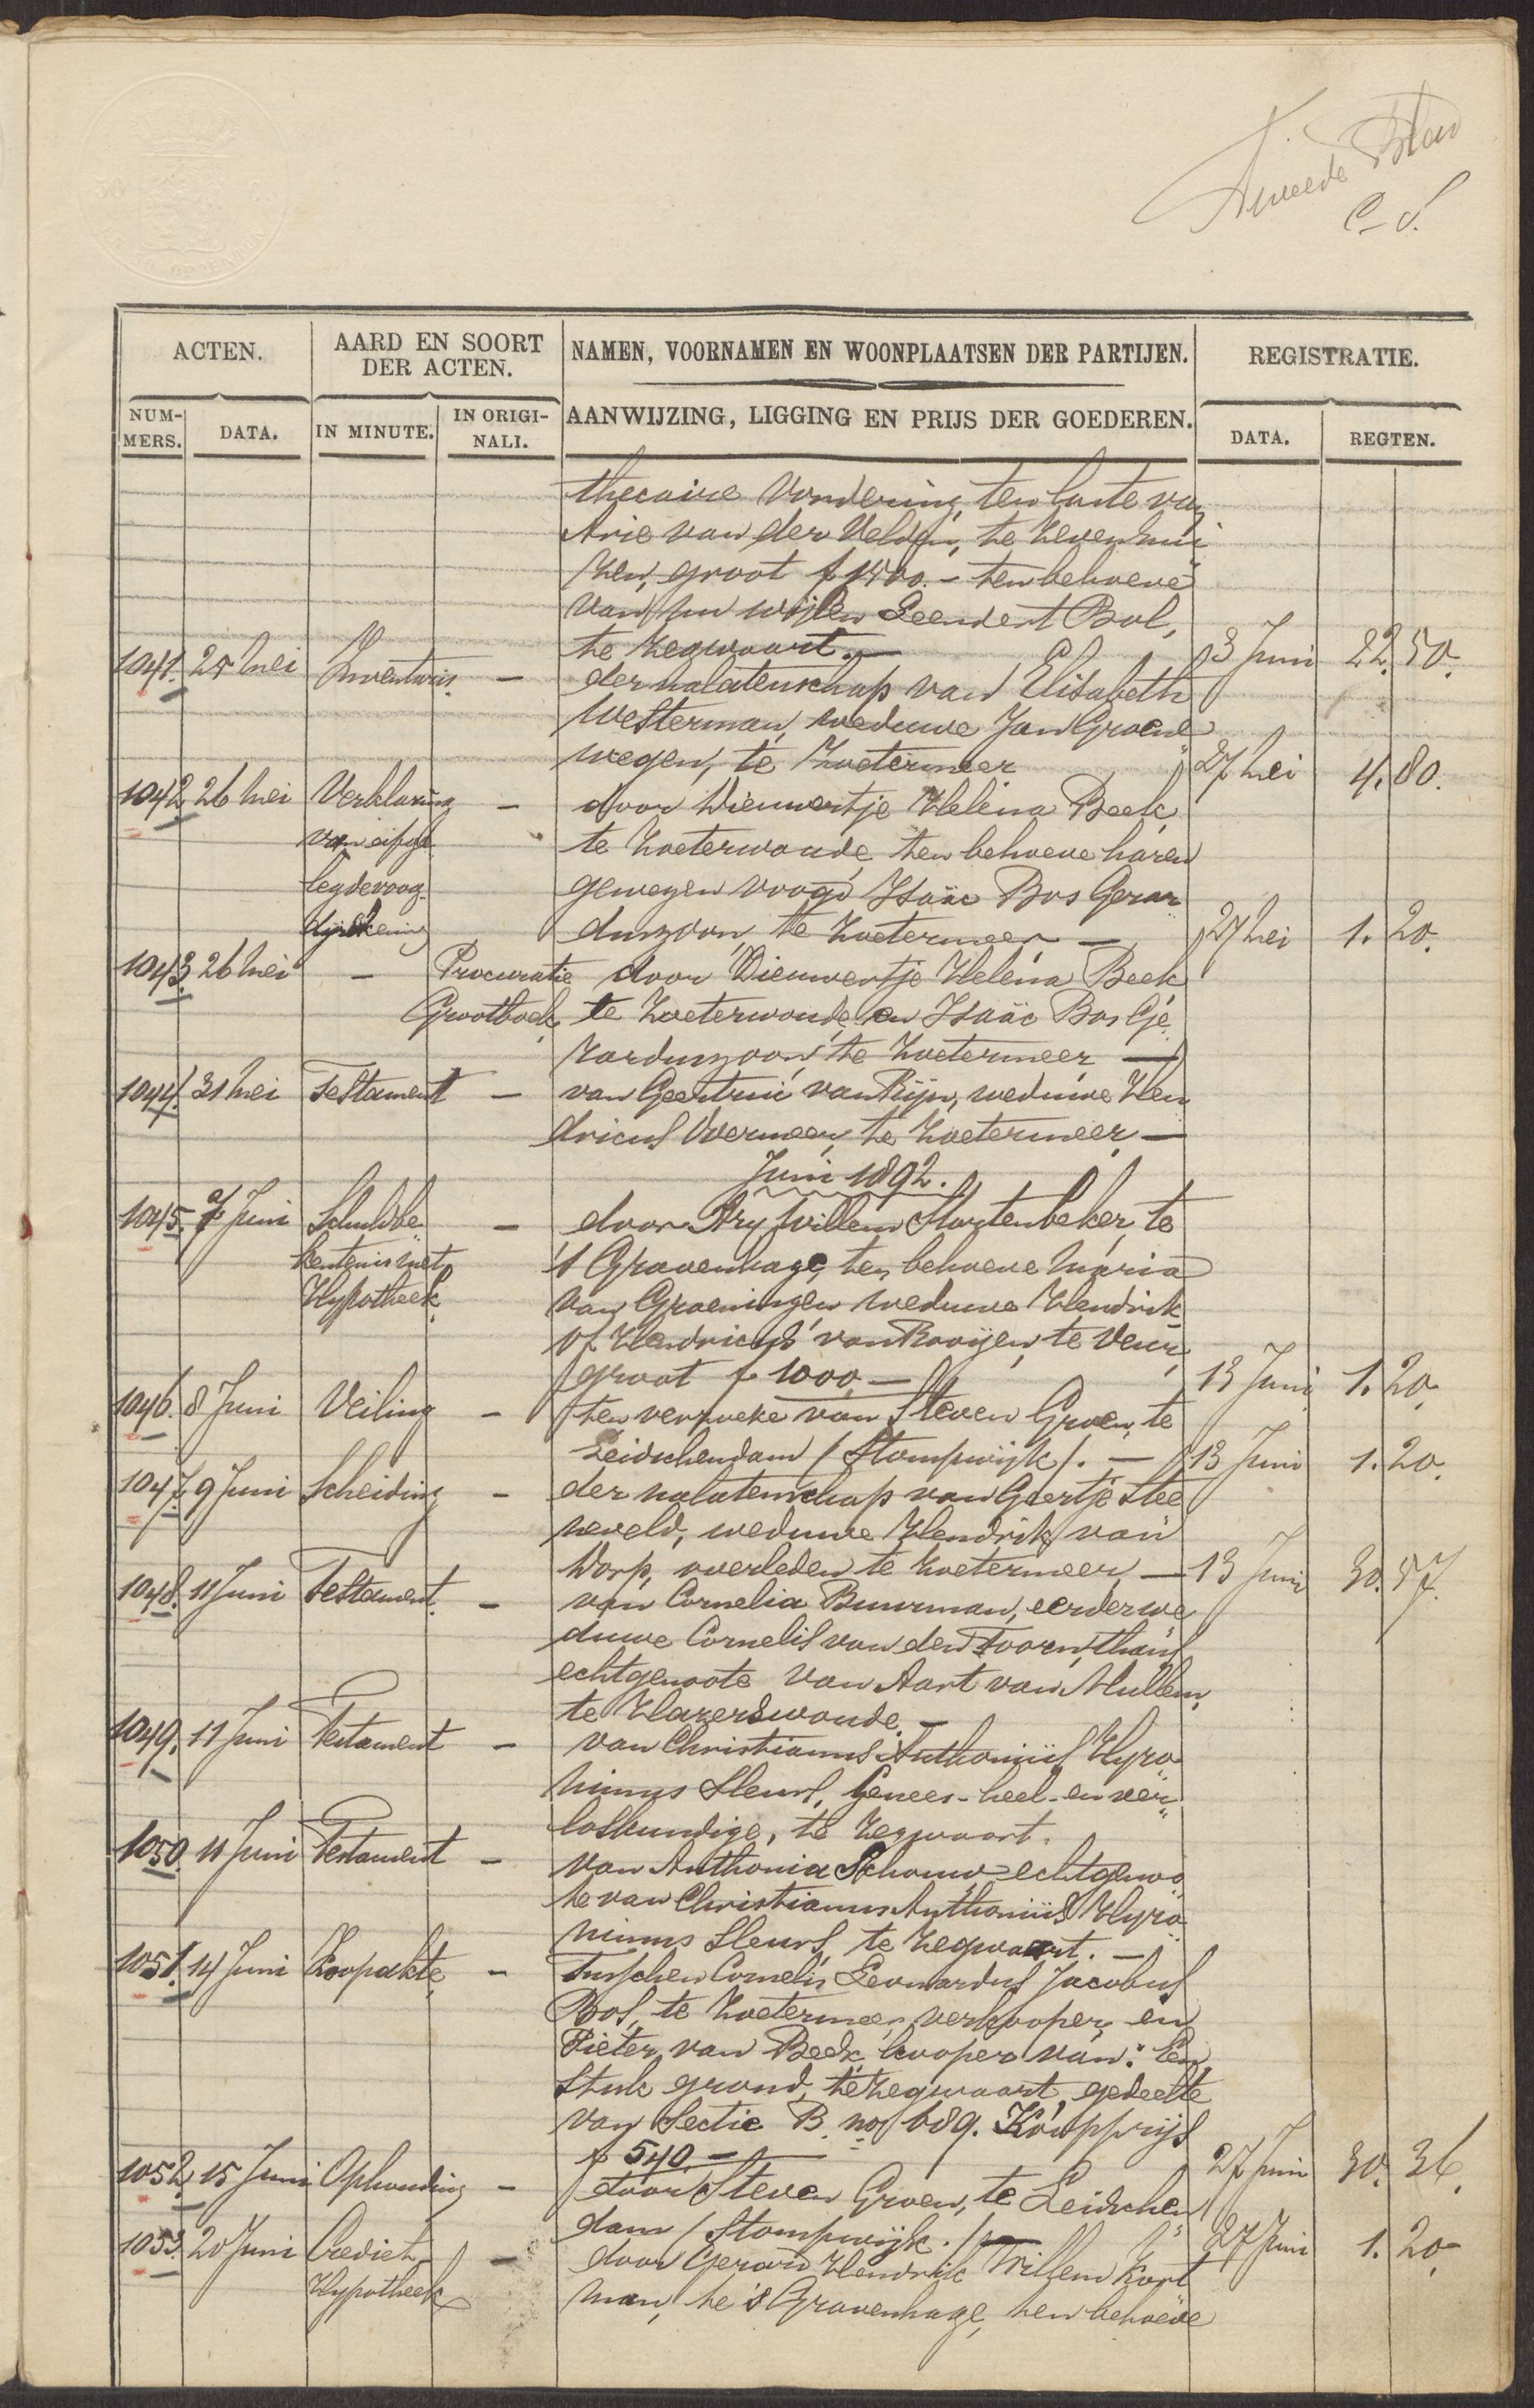 Tweede Blad
C. S.
ACTEN.
AARD EN SOORT
DER ACTEN.
NAMEN, VOORNAMEN EN WOONPLAATSEN DER PARTIJEN.
REGISTRATIE.
NUM-
MERS.
DATA.
IN MINUTE.
IN ORIGI-
NALI.
AANWIJZING, LIGGING EN PRIJS DER GOEDEREN.
DATA.
REGTEN.
thecaire Vordering, ten laste van
Arie van der Velden, te Zevenhui
zen, groot f 1500.- ten behoeve
van wijlen Leendert Bol,
te Zegwaart.— 3 Juni 22.50.
1041. 25 Mei Inventaris. - der nalatenschap van Elisabeth
Westerman, weduwe Jan Groene
wegen, te Zoetermeer 27 Mei 4.80.
1042 26 Mei Verklaring - door Dieuwertje Helena Beek,
van afge te Zoeterwoude, ten behoeve haren
legdevoog- gewezen voogd Isaäc Bos Gerar
dijrekening duszoon, te Zoetermeer — 27 Mei 1.20.
1043. 26 Mei - Procuratie door Dieuwertje Helena Beek
Grootboek, te Zoeterwoude, en Isaäc Bos Ge
rarduszoon, te Zoetermeer —
1044. 31 Mei Testament - van Geertrui van Rijn, weduwe Hen
dricus Overmeer, te Zoetermeer. —
Juni 1892.
1045. 7 Juni Schuldbe - door Ary Willem Stortenbeker, te
kentenis met 's Gravenhage, ten behoeve Maria
Hypotheek. van Groeningen weduwe Hendrik
of Hendricus van Rooijen, te Veur,
groot f 1000.— 13 Juni 1.20.
1046. 8 Juni Veiling - ten verzoeke van Steven Groen, te
Leidschendam (Stompwijk). — 13 Juni 1.20.
1047. 9 Juni Scheiding - der nalatenschap van Geertje Stee
neveld, weduwe Hendrik van
Dorp, overleden te Zoetermeer, — 13 Juni 30.57.
1048. 11 Juni Testament. - van Cornelia Buurman, eerder we
duwe Cornelis van den Toorn, thans
echtgenoote van Aart van Mullem,
te Hazerswoude. —
1049. 11 Juni Testament - van Christianus Anthoniüs Hyro
nimus Sleurs, Genees- heel- en ver
loskundige, te Zegwaart.
1050. 11 Juni Testament - van Anthonia Schouw echtgenoo
te van Christianus Anthoniüs Hyro
nimus Sleurs, te Zegwaart. —
1051. 14 Juni Koopakte, - Tusschen Cornelis Leonardus Jacobus
Bos, te Zoetermeer, verkooper, en
Pieter van Beek, kooper van: Een
stuk grond, te Zegwaart, gedeelte
van Sectie B. no. 689. Koopprijs
f 540.— 27 Juni 30.36.
1052. 15 Juni Ophouding - door Steven Groen, te Leidschen
dam (Stompwijk.) — 27 Juni 1.20.
1053. 20 Juni Crediet - door Gerard Hendrik Willem Kort
Hypotheek man, te 's Gravenhage, ten behoeve